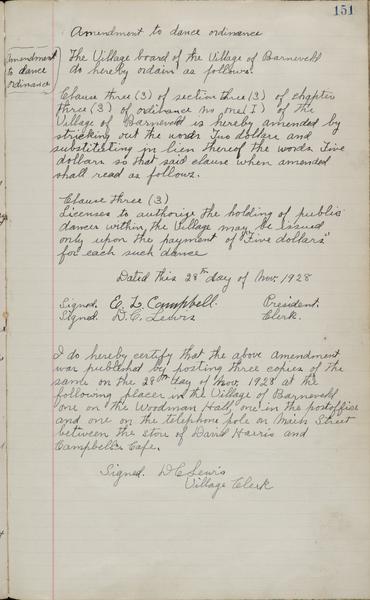 151
Amendment to dance ordinance
Amendment
to dance
ordinance
The Village board of the Village of Barneveld
do hereby ordain as follows.
Clause three (3) of section three (3) of chapter
three (3) of ordinance no one (1) of the
Village of Barneveld is hereby amended by
striking out the words Two dollars and
substituting in lieu thereof the words Five
dollars so that said clause when amended
shall read as follows.
Clause three (3)
Licenses to authorize the holding of public
dances within the Village may be issued
only upon the payment of "Five dollars"
for each such dance
Dated this 28th day of Nov, 1928
Signed. C. D. Campbell. President.
Signed. D. C. Lewis Clerk.
I do hereby certify that the above amendment
was published by posting three copies of the
same on the 28th day of Nov, 1928 at the
following places in the Village of Barneveld
one on the Woodman Hall, one in the postoffice
and one on the telephone pole on Main Street
between the store of David Harris and
Campbells Cafe.
Signed. D C Lewis
Village Clerk